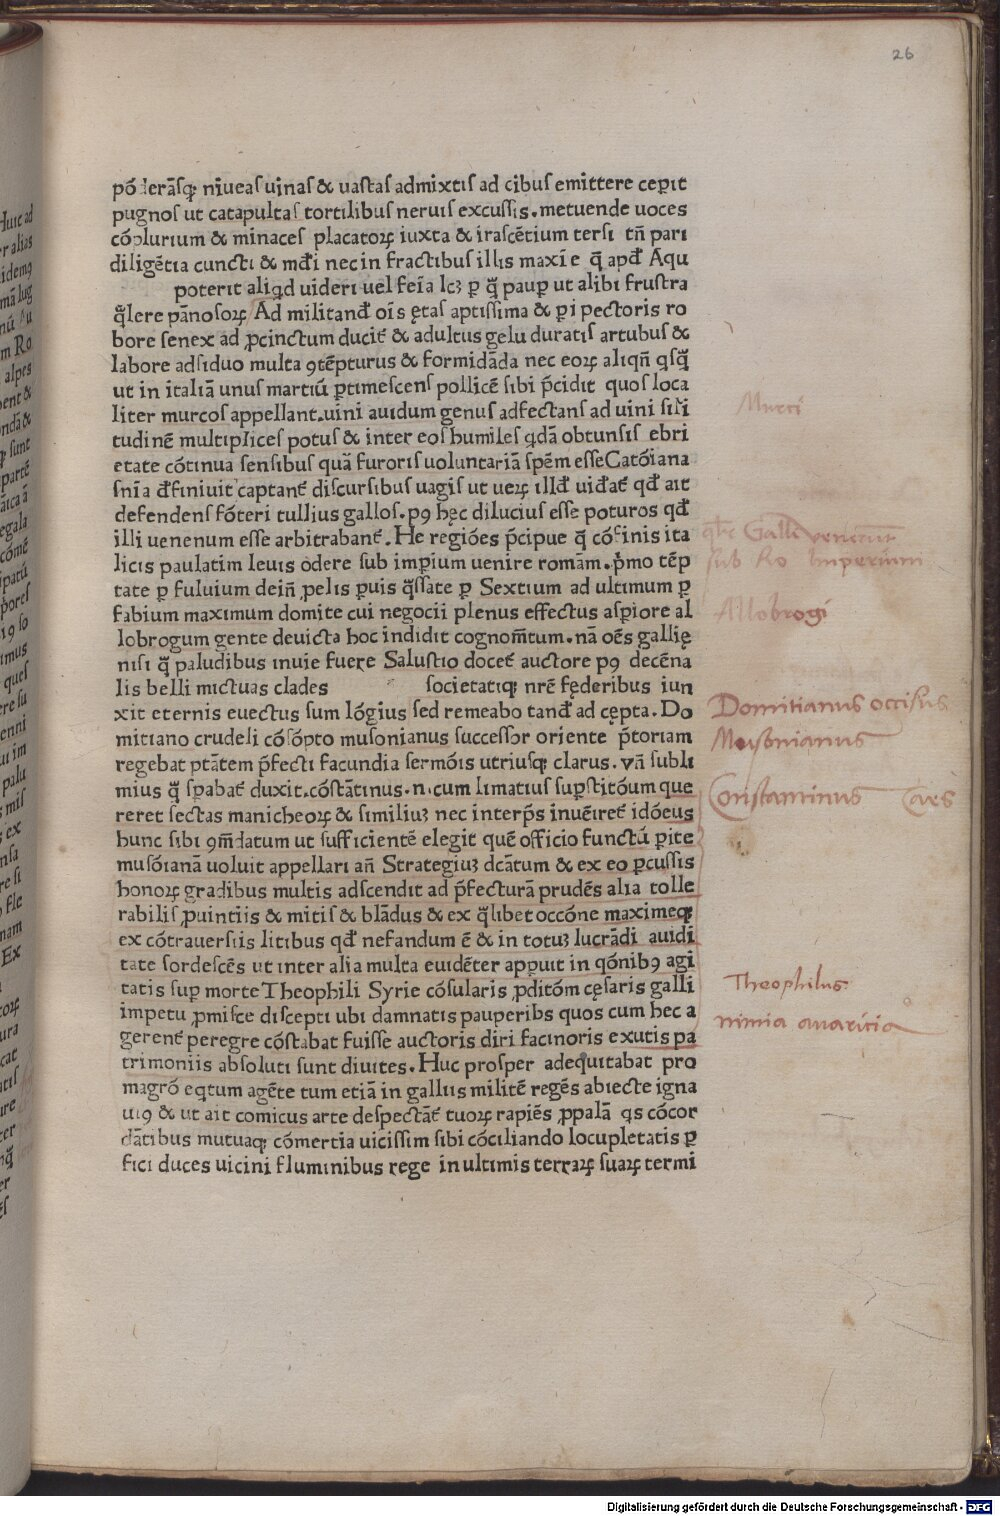 26
põderãsq; niueas uinas & uastas admixtis ad cibus emittere cep̱it
pugnos ut catapultas tortilibus neruis excussis. metuende uoces
cõplurium & minaces placatoꝝ iuxta & irascẽtium tersi tñ pari
diligẽtia cuncti & mđi nec in fractibus illis maxĩe q̃ apđ Aqu
poterit aliqđ uideri uel feĩa lcꝫ ꝑ q̃ꝫ pauꝑ ut alibi frustra
q̃lere pãnosoꝝ Ad militanđ oĩs ętas aptissima & ꝑi pectoris ro
bore senex ad ꝓcinctum ducit̃ & adultus gelu duratis artubus &
labore adsiduo multa ꝯtẽpturus & formidãda nec eoꝝ aliqñ qsq̃ꝫ
ut in italiã unus martiũ ꝑtimescens pollicẽ sibi p̃cidit quos loca
liter murcos appellant. uini auidum genus adfectans ad uini sili
tudinẽ multiplices potus & inter eos humiles qdã obtunsis ebri
etate cõtinua sensibus quã furoris uoluntariã spẽm esse Catõiana
sñia đfiniuit captant̃ discursibus uagis ut ueꝝ illđ uideat̃ qđ ait
defendens fõteri tullius gallos. pꝯ hęc dilucius esse poturos qđ
illi uenenum esse arbitrabant̃. He regiões p̃cipue q̃ cõfinis ita
licis paulatim leuis õdere sub imꝑium uenire romãm. p̃mo tẽp
tate ꝑ fuluium deiñ ꝓelis ꝑuis q̃ssate ꝑ Sextium ad ultimum ꝑ
fabium maximum domite cui negocii plenus effectus asꝑiore al
lobrogum gente deuicta hoc indidit cognom̃tum. nã oẽs gallię
nisi q̃ paludibus inuie fuere Salustio docet̃ auctore pꝯ decẽna
lis belli mictuas clades societatiqꝫ nrẽ fęderibus iun
xit eternis euectus sum lõgius sed remeabo tanđ ad cępta. Do
mitiano crudeli cõsõpto musonianus successor oriente p̃toriam
regebat ptãtem p̃fecti facundia sermõis utriusqꝫ clarus. uã subli
mius q̃ꝫ sꝑabat̃ duxit. cõstãtinus. n. cum limatius suꝑstitõum que
reret sectas manicheoꝝ & similiuꝫ nec interp̃s inuẽiret̃ idõeus
hunc sibi ꝯm̃datum ut sufficientẽ elegit quẽ officio functũ ꝑite
musõianã uoluit appellari añ Strategiuꝫ dcãtum & ex eo ꝑcussis
honoꝝ gradibus multis adscendit ad p̃fecturã prudẽs alia tolle
rabilis ꝓuintiis & mitis & blãdus & ex q̃libet occõne maximeqꝫ
ex cõtrauersiis litibus qđ nefandum ẽ & in totuꝫ lucrãdi auidi
tate sordescẽs ut inter alia multa euidẽter apꝑuit in qõnibꝯ agi
tatis suꝑ morte Theophili Syrie cõsularis ꝓditõm cęsaris galli
impetu ꝓmisce discepti ubi damnatis pauperibs quos cum hec a
gerent̃ peregre cõstabat fuisse auctoris diri facinoris exutis pa
trimoniis absoluti sunt diuites. Huc prosper adequitabat pro
magrõ eqtum agẽte tum etiã in galliis militẽ regẽs abiecte igna
uiꝯ & ut ait comicus arte despectãt̃ tuoꝝ rapiẽs ꝓpalã qs cõcor
dãtibus mutuaqꝫ cõmertia uicissim sibi cõciliando locupletatis ꝑ
fici duces uicini fluminibus rege in ultimis terraꝝ suaꝝ termi
Murci
Galli venerunt
sub Ro Imperium
Allobrogi
Domitianus occisus
Musonianus
Constantinus Caes
Theophilus
nimia avaricia
Digitalisierung gefördert durch die Deutsche Forschungsgemeinschaft - DFG